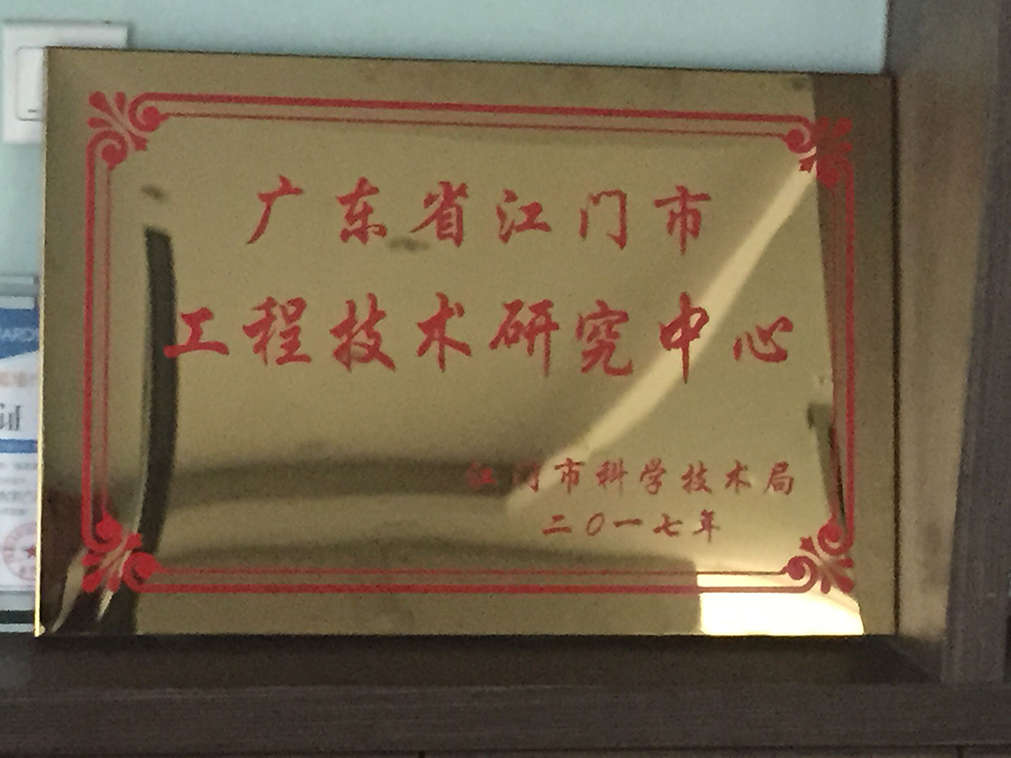 广东省江门市
工程技术研究中心
江门市科学技术局
二〇一七年
证